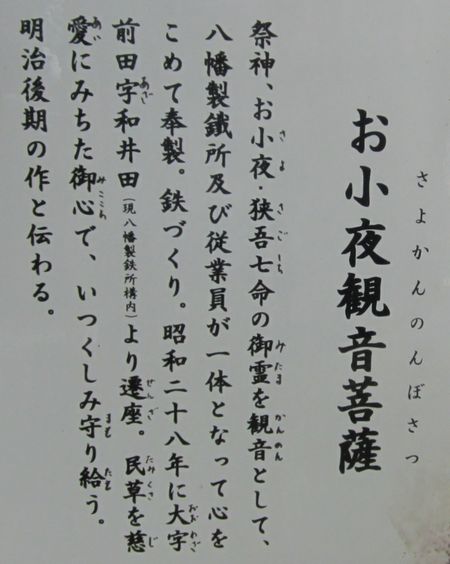 お小夜観音菩薩
さよかんのんぼさつ
祭神、お小夜・狭吾七命の御霊を観音として、
八幡製鐵所及び従業員が一体となって心を
こめて奉製。鉄づくり。昭和二十八年に大字
前田字和井田（現八幡製鉄所構内）より遷座。民草を慈
愛にみちた御心で、いつくしみ守り給う。
明治後期の作と伝わる。